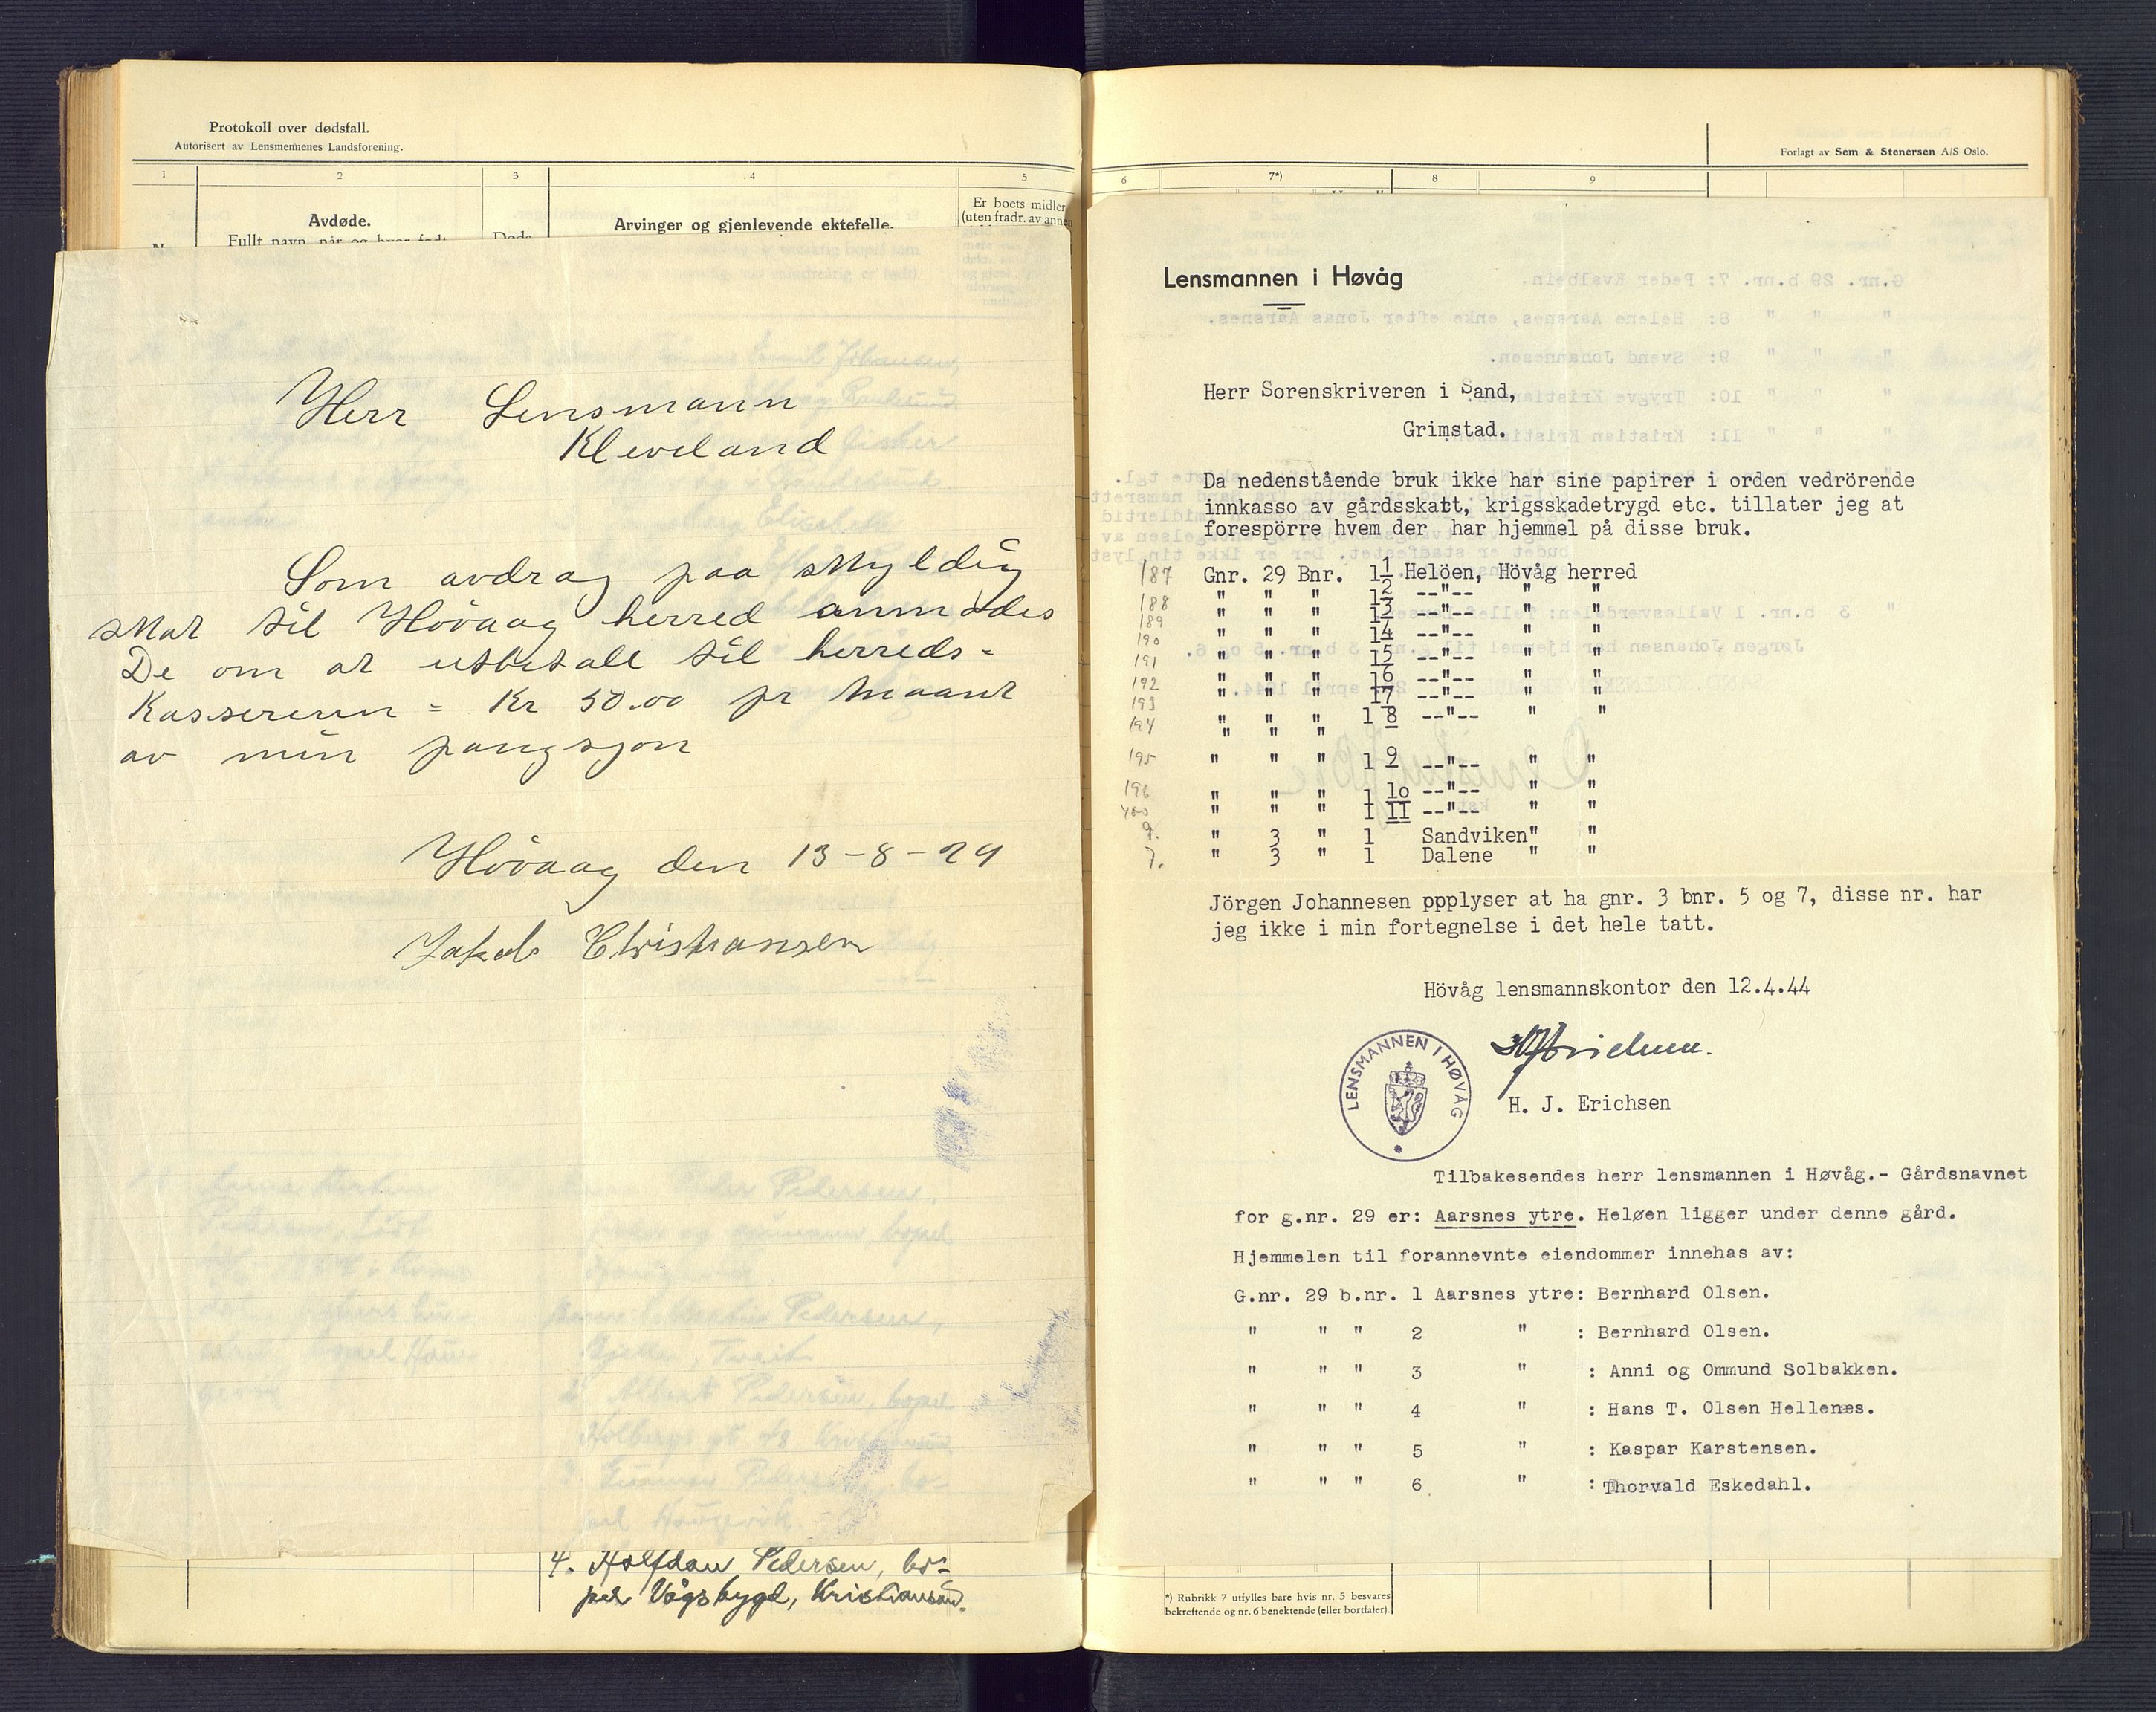 Protokoll over dødsfall.
Autorisert av Lensmennenes Landsforening.
1 2 3 4 5
Avdøde.
Arvinger og gjenlevende ektefelle.
Er boets midler
(uten fradr. av annen
Fullt navn, når og hvor født
Herr Lensmann
Kleveland
Som avdrag paa skyldig
skat til Høvaag herred anmodes
De om at utbetale til herreds-
Kassereren = Kr 50.00 pr Maant
av min pangsjon
Høvaag den 13-8-29
Jakob Christiansen
4. Halfdan Pedersen, bo-
pel Vågsbygd, Kristiansand.
Forlagt av Sem & Stenersen A/S Oslo.
6 7*) 8 9
Lensmannen i Høvåg
Herr Sorenskriveren i Sand,
Grimstad.
Da nedenstående bruk ikke har sine papirer i orden vedrörende
innkasso av gårdsskatt, krigsskadetrygd etc. tillater jeg at
forespörre hvem der har hjemmel på disse bruk.
187 Gnr. 29 Bnr. 1 1 Helöen, Hövåg herred
188 " " " 1 2 --"-- " "
189 " " " 1 3 --"-- " "
190 " " " 1 4 --"-- " "
191 " " " 1 5 --"-- " "
192 " " " 1 6 --"-- " "
193 " " " 1 7 --"-- " "
194 " " " 1 8 --"-- " "
" " "
195 " " " 1 9 --"-- " "
196 " " " 1 10 --"-- " "
400 " " " 1 II --"-- " "
9. " 3 " 1 Sandviken " "
7. " 3 " 1 Dalene " "
Jörgen Johannesen ppplyser at ha gnr. 3 bnr. 5 og 7, disse nr. har
jeg ikke i min fortegnelse i det hele tatt.
Hövåg lensmannskontor den 12.4.44
LENSMANNEN I HØVÅG
H. J. Erichsen
Tilbakesendes herr lensmannen i Høvåg.- Gårdsnavnet
for g.nr. 29 er: Aarsnes ytre. Heløen ligger under denne gård.
Hjemmelen til forannevnte eiendommer innehas av:
G.nr. 29 b.nr. 1 Aarsnes ytre: Bernhard Olsen.
" " " 2 " : Bernhard Olsen.
" " " 3 " : Anni og Ommund Solbakken.
" " " 4 " : Hans T. Olsen Hellenæs.
" " " 5 " : Kaspar Karstensen.
" " " 6 " : Thorvald Eskedahl.
*) Rubrikk 7 utfylles bare hvis nr. 5 besvares
bekreftende og nr. 6 benektende (eller bortfaler)